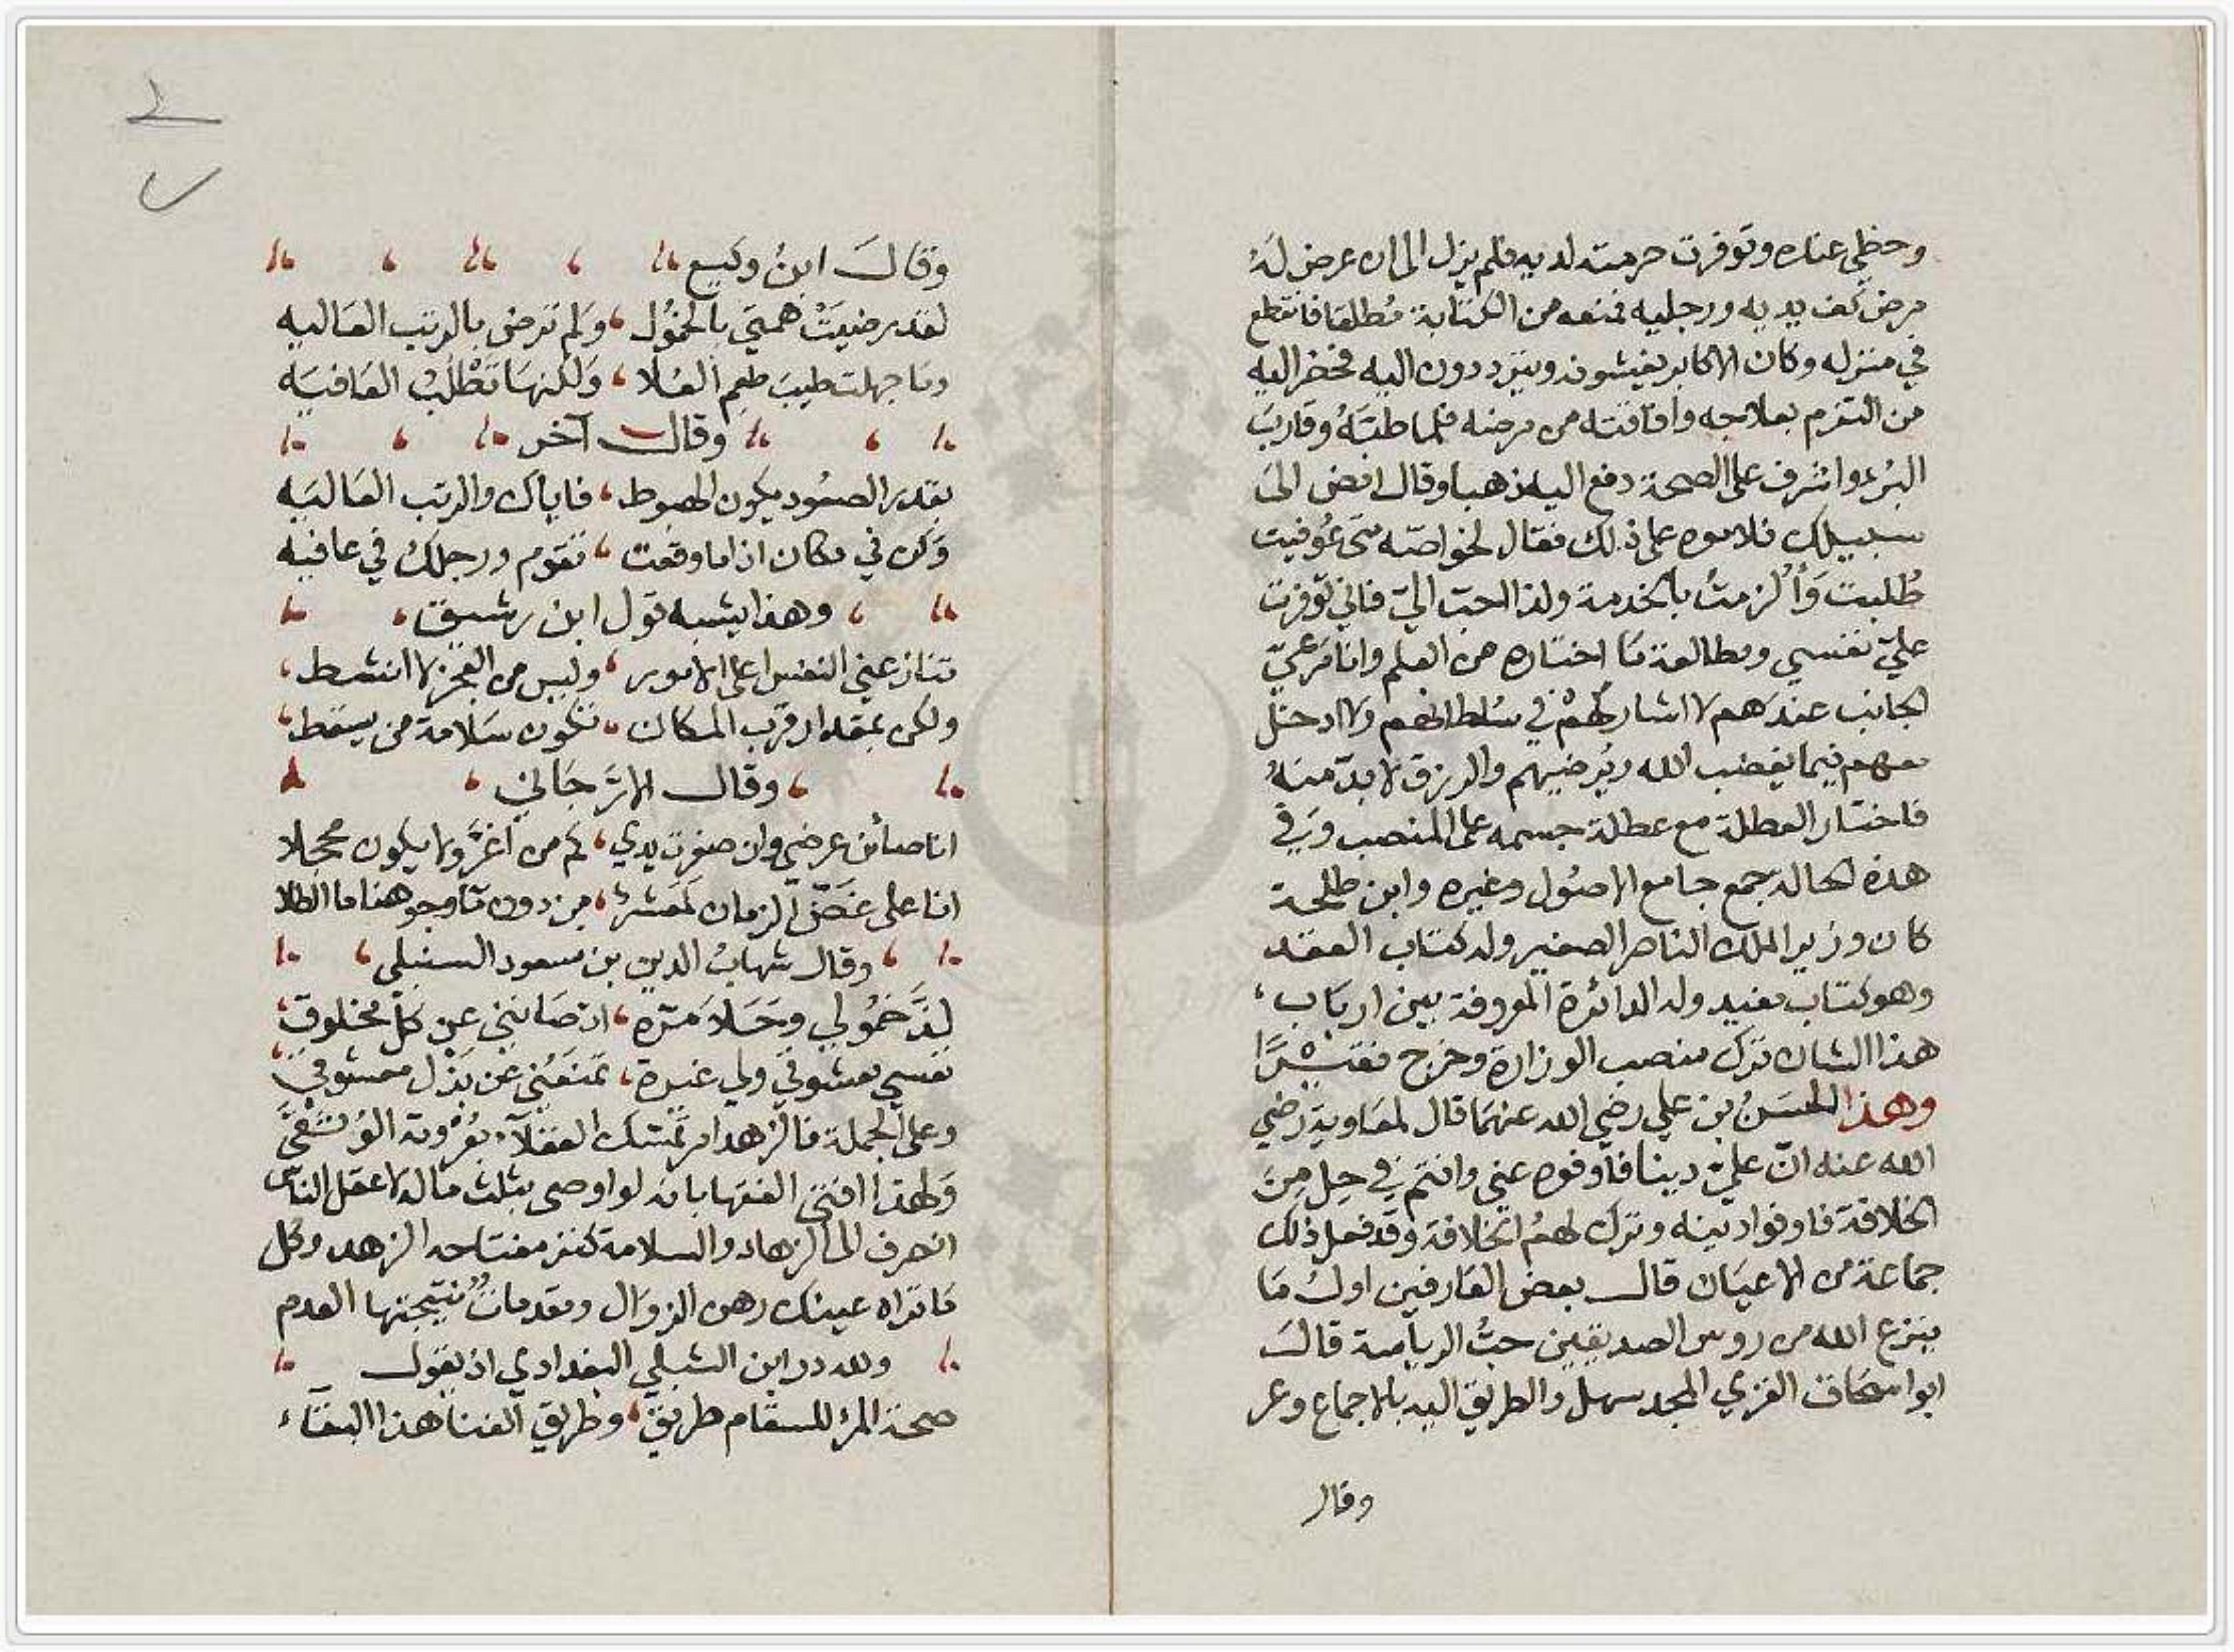 وحظي عنده وتوفرت حرمته لديه فلم يزل الى ان عرض لهُ
مرض كف يديه ورجليه فمنعه من الكتابة مُطلقا فانقطع
في منزله وكان الاكابر يغيشونه ويترددون اليه فحضر اليه
من التزم بعلاجه وافاقته من مرضه فلما طبّهُ وقاربَ
البُرء واشرف على الصحة دفع اليه ذهبا وقال امض الىَ
سبيلك فلاموه على ذلك فقال لخواصّه متى عُوفيت
طُلبت وَأُلزمتُ بالخدمة وهذا احبّ اليّ فاني توفرت
عليّ نفسي ومطالعة مَا اختاره من العلم وانا مَرعيّ
الجانب عندَهم لا اشاركُهمْ في سُلطانهم ولا ادخل
معهم فيما يغضب الله ويُرضيهم والرزق لا بدّ منهُ
فاختار العطلة مع عطلة جسمه على المنصب وَفي
هذه الحاله جمع جامع الاصُول وغيره وابن طلحة
كان وزير الملك الناصر الصغير وله كتاب العقد
وهو كتاب مفيد وله الدائرة المعروفة بين اربَاب ،
هذا الشان ترك منصب الوزارة وخرج
وهذا الحسَنُ بن علي رضي الله عنهمَا قال لمعَاويةَ رضي
الله عنه انّ عليّ دينا فاوفوه عني وانتم في حِل مِنَ
الخلافة فاوفوا دينه وترك لهمُ الخلافة وقد فعل ذلك
جماعة من الاعيَان قال بعض العَارفين اولُ مَا
ينزع الله من روس الصديقين حبُّ الرياسة قالَ
ابو اسحَاق الغزي المجد سهل والطريق اليه بالاجماع وعر
وقال
وقَالَ ابنُ وكيع
لقد رضيَتْ همتي بالخمُول ، وَلم ترضى بالرتب العَاليه
ومَا جهلت طيبَ طعمِ العُلا ، وَلكنهَا تَطْلُبُ العَافيَه
وقال آخر
بقدر الصعُود يكون الهبوط ، فاياك والرتب العَاليَه
وَكن في مكان اذا ما وقعت ، تقوم ورجلكُ في عافيه
وهذا يشبه قول ابن رشيق ،
تنازعني النفس اعلى الامور ، وليس من العجز لا انشط ،
ولكن بمقدار قرب المكان ، تكون سَلامة من يسقط ،
وقال الارَّجَاني ،
انا صائن عرضي وان صفرت يدي ، كم من اغرَّ ولا يكون محجلا
انا على الزمان لمعشر ، من دون ماء وجوههنا ماء الطلا
وقال شهابُ الدين بن مسعود السنبلي ،
لذَّ خمُولي وحَلا مَرّه ، اذ صَانني عن كلّ مخلوق ،
نفسي معشوقي ولي غيرة ، تمنعُني عن بَذْل معشوقي
وعلى الجملة فالزهد امر تمسّك العقلآء بعُرْوته الوُثْقىَ
وَلهذا افتى الفقها بانه لو اوصى بثلث ماله لاعقل الناس
انصرف الى الزهاد والسلامة كنز مفتاحه الزهد وكل
مَا تراه عينك رهن الزوَال ومقدماتٌ نتيجتها العدم
ولله در ابن الشبلي البغدادي اذ يقول
صحة المرء للسقام طريق ، وطريق الفنا هذا البقآء